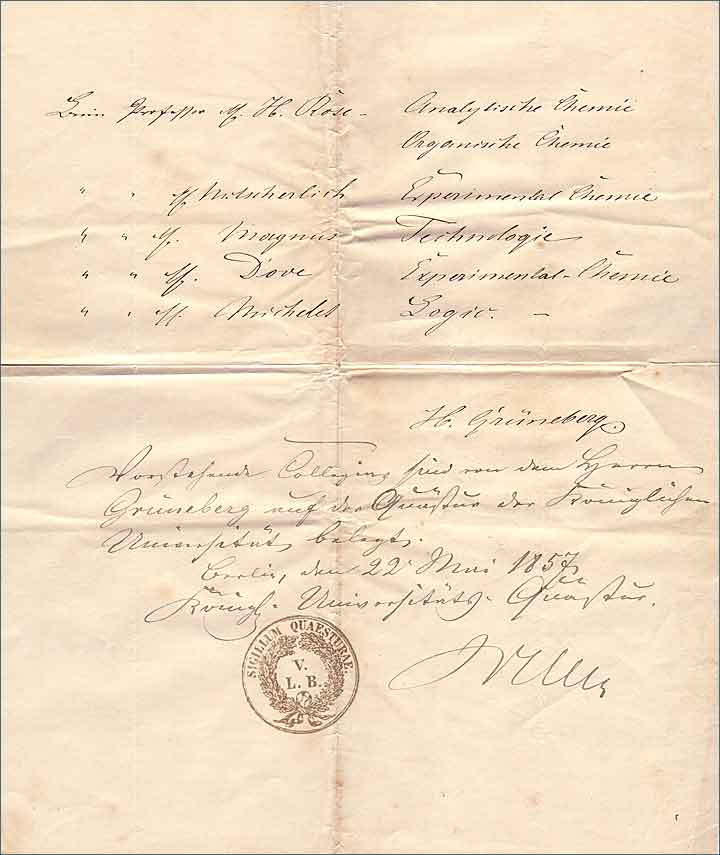 Beim Professor H. H. Rose - Analytische Chemie
Organische Chemie
" " H. Mitscherlich Experimental Chemie
" " H. Magnus Technologie
" " H. Dove Experimental-Chemie
" " H. Michelet Logic. -
H. Grüneberg.
Vorstehende Collegien sind von dem Herrn
Grüneberg auf der Quästur der Königlichen
Universität belegt.
Berlin, den 22 Mai 1857
Königl. Universitäts-Quästur.
SIGILLUM QUAESTURAE.
V.
L. B.